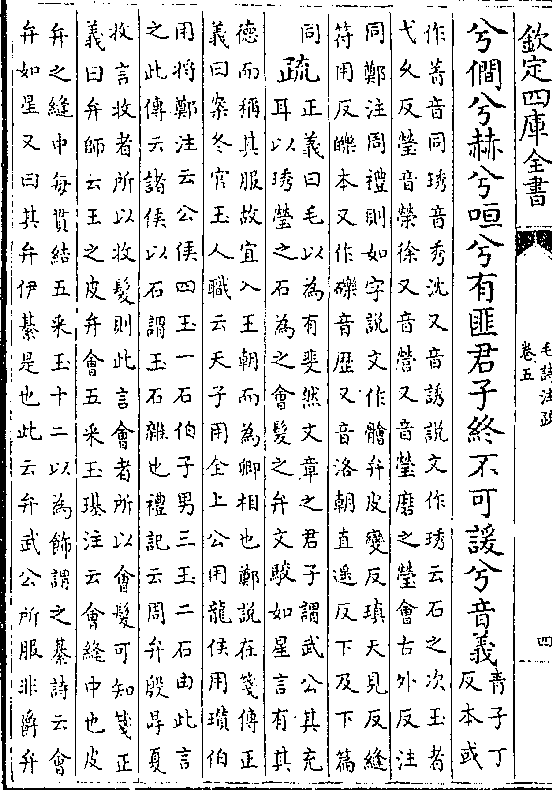 欽定四庫全書
毛詩注疏
卷五
四
兮僩兮赫兮咺兮有匪君子終不可諼兮音義
青子丁
反本或
作菁音同琇音秀沈又音誘說文作琇云石之次玉者
弋久反瑩音榮徐又音營又音瑩磨之瑩會古外反注
同鄭注周禮則如字說文作䯤弁皮變反瑱天見反縫
符用反皪本又作礫音歷又音洛朝直遥反下及下篇
同
疏
正義曰毛以為有斐然文章之君子謂武公其充
耳以琇瑩之石為之會髮之弁文駮如星言有其
德而稱其服故宜入王朝而為卿相也鄭說在箋傳正
義曰案冬官玉人職云天子用全上公用龍侯用瓚伯
用將鄭注云公侯四玉一石伯子男三玉二石由此言
之此傳云諸侯以石謂玉石雜也禮記云周弁殷冔夏
收言收者所以收髮則此言會者所以會髮可知箋正
義曰弁師云王之皮弁會五采玉璂注云會縫中也皮
弁之縫中每貫結五采玉十二以為飾謂之綦詩云會
弁如星又曰其弁伊綦是也此云弁武公所服非爵弁